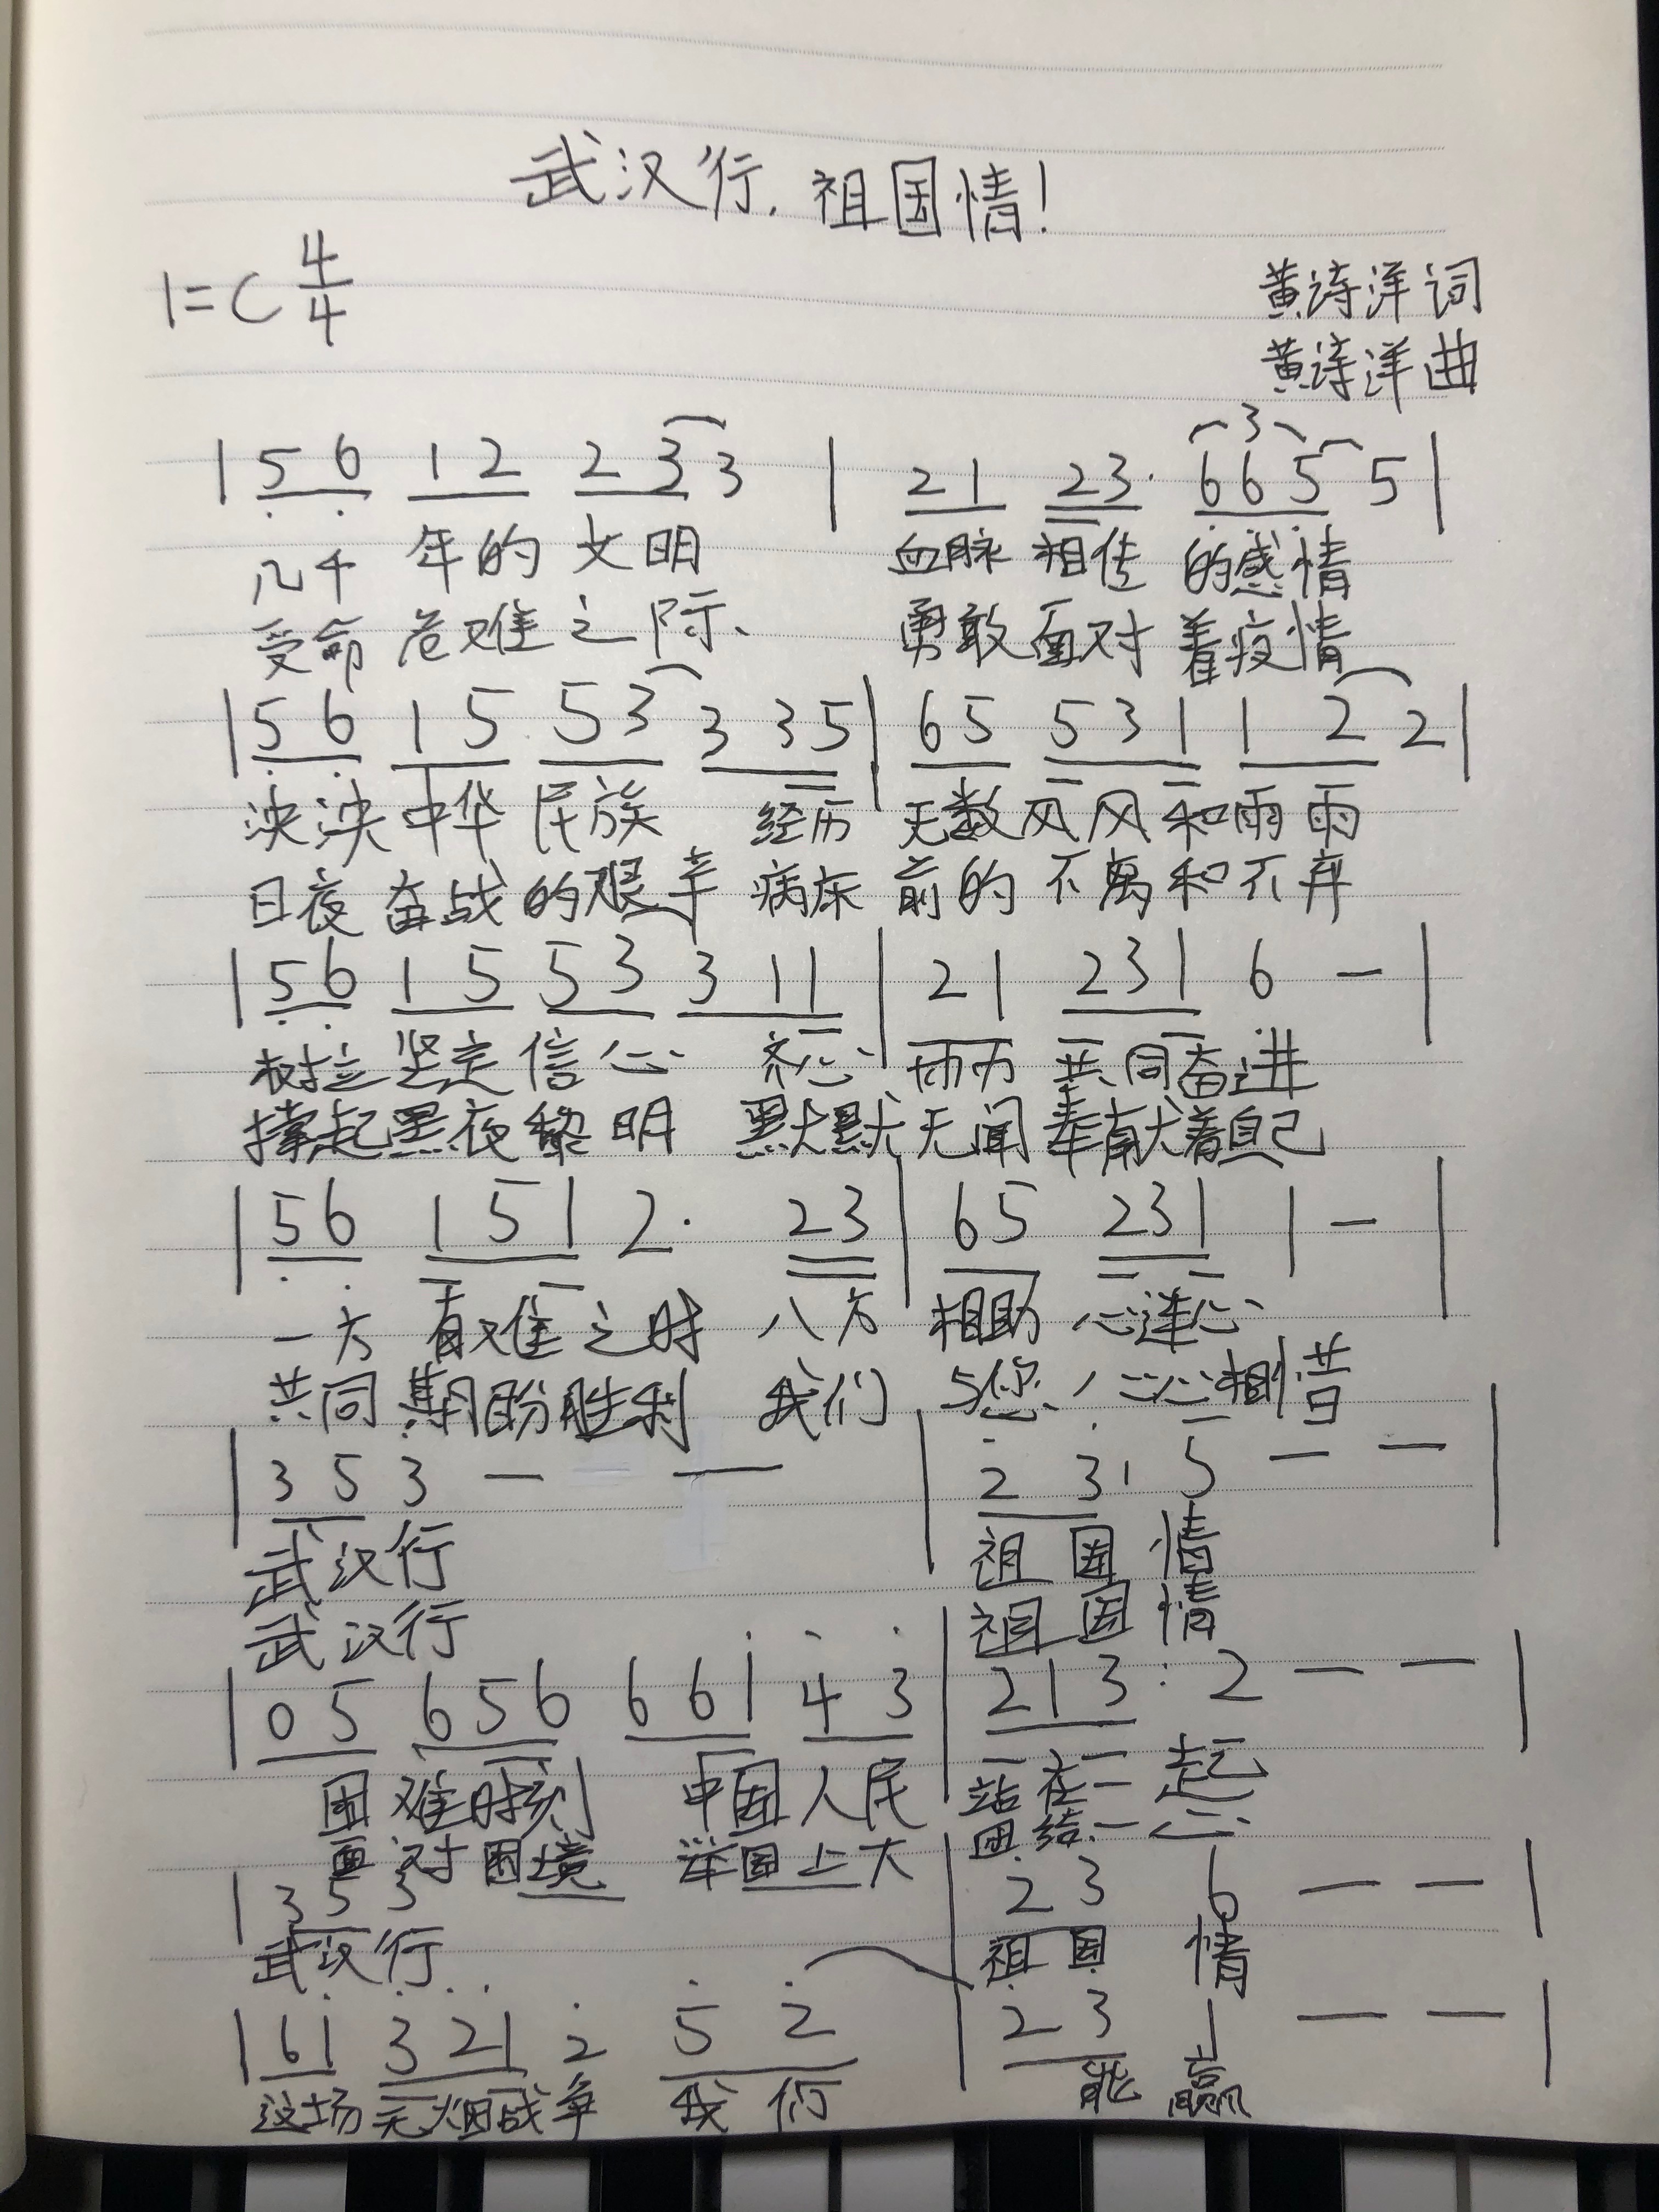 武汉行，祖国情！
1=C 4/4
黄诗洋词
黄诗洋曲
| 5 6 1 2 2 3 3 | 2 1 2 3· 6 6 5 5 |
几千年的文明 血脉相传的感情
受命危难之际、 勇敢面对着疫情
| 5 6 1 5 5 3 3 3 5 | 6 5 5 3 1 1 2 2 |
泱泱中华民族 经历无数风风和雨雨
日夜奋战的艰辛 病床前的不离和不弃
| 5 6 1 5 5 3 3 1 1 | 2 1 2 3 1 6 — |
树立坚定信心 齐心 共同奋进
撑起黑夜黎明 默默无闻奉献着自己
| 5 6 1 5 1 2· 2 3 | 6 5 2 3 1 1 — |
一方有难之时 八方相助心连心
共同期盼胜利 我们与您心心相惜
| 3 5 3 — — — | 2 3 1 5 — — |
武汉行 祖国情
武汉行 祖国情
| 0 5 6 5 6 6 6 1 4 3 | 2 1 3· 2 — — |
困难时刻 中国人民 站在一起
面对困境 举国上下 团结一心
| 3 5 3 | 2 3 6 — — |
武汉行 祖国情
| 6 1 3 2 1 2 5 2 | 2 3 1 — — |
这场无烟战争 我们 能赢